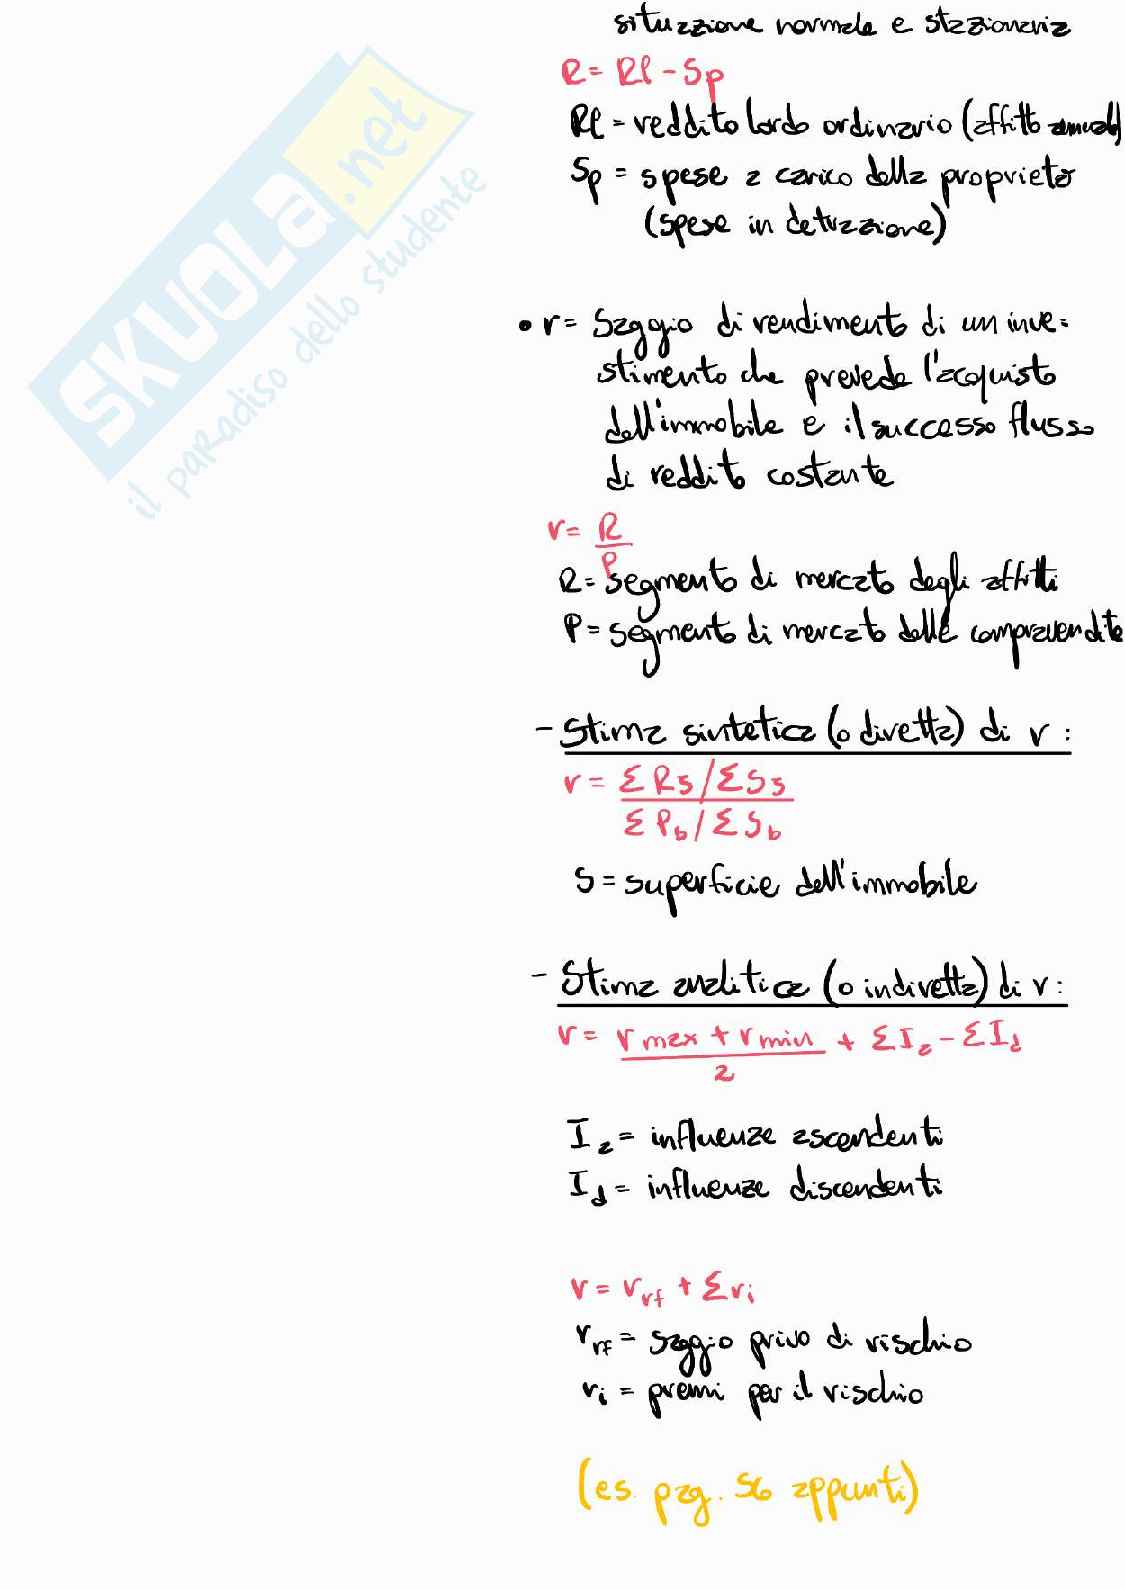 situazione normale e stazionaria
R = Rl - Sp
Rl = reddito lordo ordinario (affitto annuale)
Sp = spese a carico della proprietà
(spese in detrazione)
• r = Saggio di rendimento di un inve=
stimento che prevede l'acquisto
dell'immobile e il successo flusso
di reddito costante
r = R/P
R = segmento di mercato degli affitti
P = segmento di mercato delle compravendite
- Stima sintetica (o diretta) di r :
r = ΣRs/ΣSs
ΣPb/ΣSb
S = superficie dell'immobile
- Stima analitica (o indiretta) di r :
r = r max + r min / 2 + ΣIa - ΣId
Ia = influenze ascendenti
Id = influenze discendenti
r = rrf + Σri
rrf = saggio privo di rischio
ri = premi per il rischio
(es. pag. 56 appunti)
SKUOLA.net
il paradiso dello studente